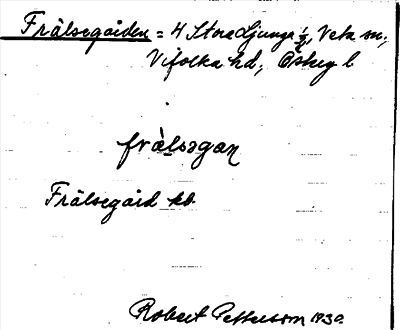 Frälsegården = 4 Stora Ljunga ½, Veta sn;
Vifolka hd; Östeg l
frälsəgan
Frälsegård kb.
Robert Petterson 1930.